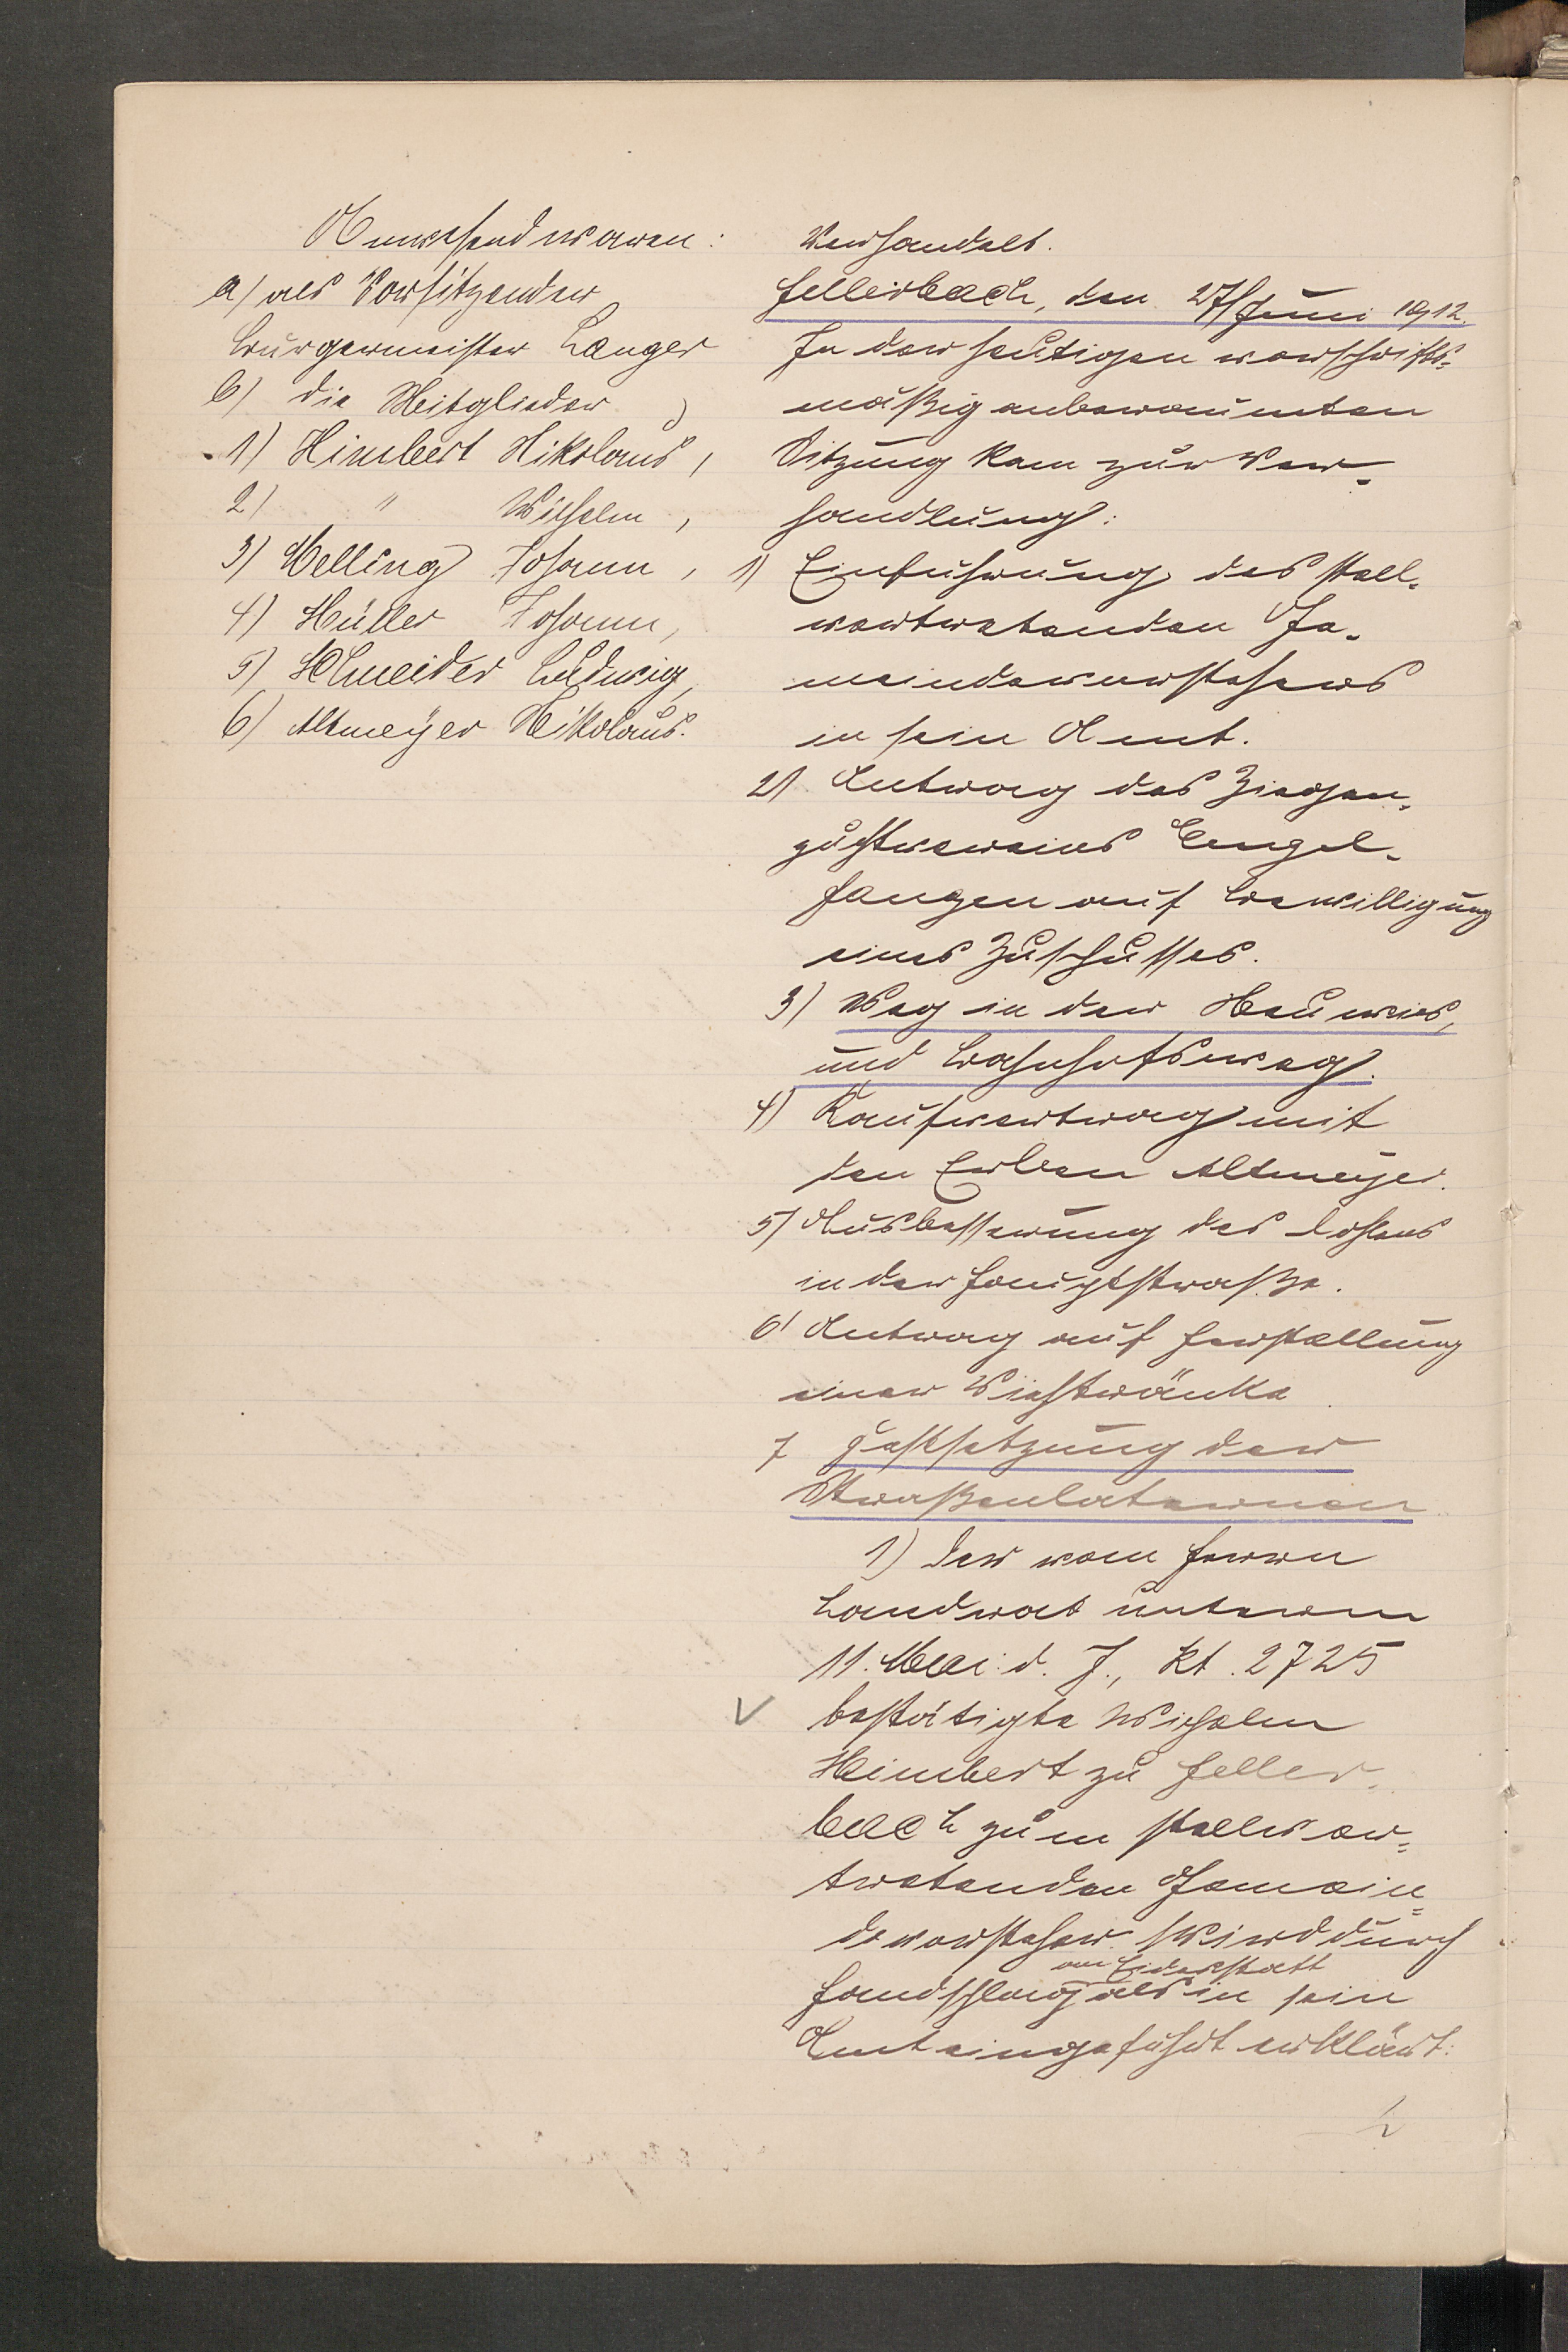 Anwesend waren:
a) als Vorsitzender
Bürgermeister Langer
b) die Mitglieder
1) Himbert Nikolaus,
2) " Wilhelm,
3) Melling Johann,
4) Müller Johann,
5) Schneider Ludwig,
6) Altmeyer Nikolaus.
Verhandelt.
Hellerbach, den 27. Juni 1912.
In der heutigen vorschrifts-
mäßig anberaumten
Sitzung kam zur Ver-
handlung:
1) Einführung des stell-
vertretenden Ge-
meindevorstehers
in sein Amt.
2) Antrag des Ziegen-
zuchtvereins Engel-
fangen auf Bewilligung
eines Zuschusses.
3) Weg in der
und Bahnhofsweg.
4) Kaufvertrag mit
den Erben Altmeyer.
5) Ausbesserung des
in der Hauptstraße.
6) Antrag auf Herstellung
einer Viehtränke
7 Festsetzung der
Straßenlaternen
1) Der vom Herrn
Landrat unterm
11. Mai d. J., Kt. 2725
bestätigte Wilhelm
Himbert zu Heller-
bach zum stellver-
tretenden Gemein-
devorsteher wird durch
Handschlag an Eidesstatt als in sein
Amt eingeführt erklärt.